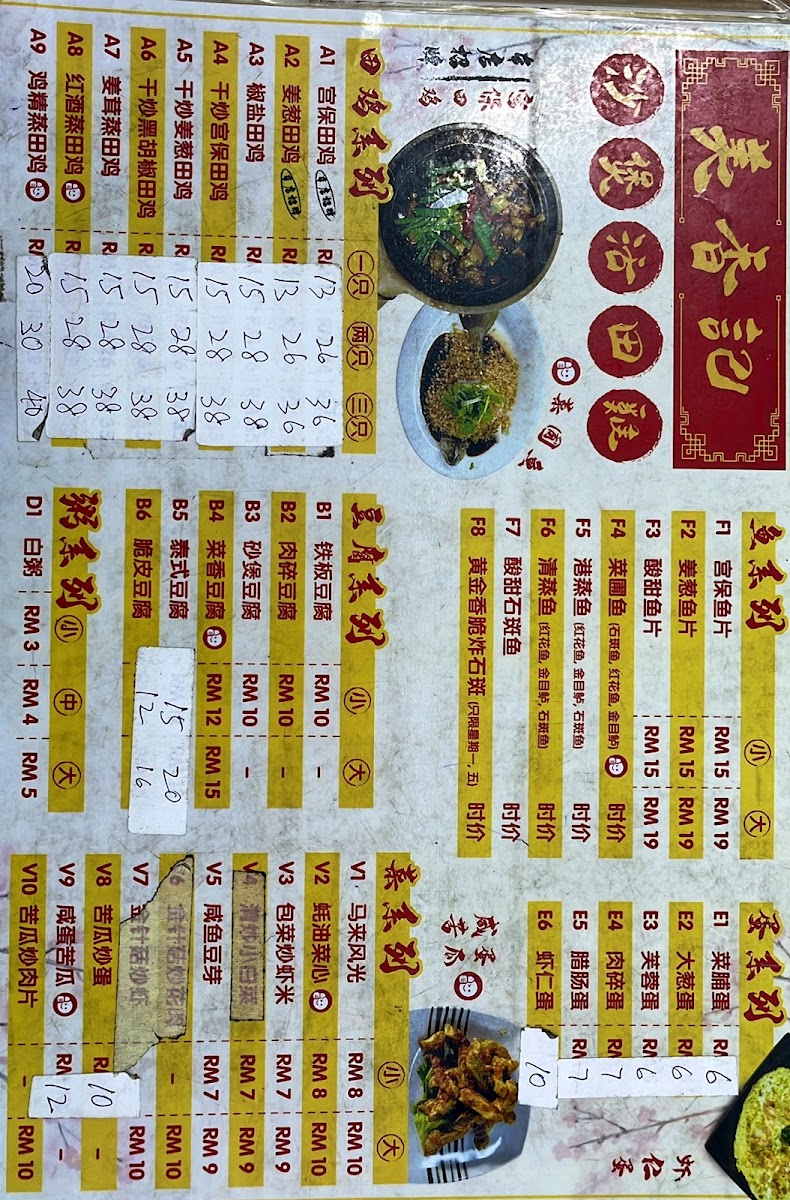 美香记
沙煲活田鸡
本店招牌
宫保田鸡
菜圃鱼
田鸡系列 一只 两只 三只
A1 宫保田鸡 本店招牌 RM 13 26 36
A2 姜葱田鸡 本店招牌 RM 13 26 36
A3 椒盐田鸡 RM 15 28 38
A4 干炒宫保田鸡 15 28 38
A5 干炒姜葱田鸡 RM 15 28 38
A6 干炒黑胡椒田鸡 RM 15 28 38
A7 姜茸蒸田鸡 RM 15 28 38
A8 红酒蒸田鸡 RM 15 28 38
A9 鸡精蒸田鸡 RM 20 30 40
豆腐系列 小 大
B1 铁板豆腐 RM 10 –
B2 肉碎豆腐 RM 10 –
B3 砂煲豆腐 RM 10 –
B4 菜香豆腐 RM 12 RM 15
B5 泰式豆腐 15 20
B6 脆皮豆腐 12 16
粥系列 小 中 大
D1 白粥 RM 3 RM 4 RM 5
鱼系列 小 大
F1 宫保鱼片 RM 15 RM 19
F2 姜葱鱼片 RM 15 RM 19
F3 酸甜鱼片 RM 15 RM 19
F4 菜圃鱼 (石斑鱼, 红花鱼, 金目鲈) 时价
F5 港蒸鱼 (红花鱼, 金目鲈, 石斑鱼) 时价
F6 清蒸鱼 (红花鱼, 金目鲈, 石斑鱼) 时价
F7 酸甜石斑鱼 时价
F8 黄金香脆炸石斑 (只限星期一, 五) 时价
蛋系列
E1 菜脯蛋 RM 6
E2 大葱蛋 RM 6
E3 芙蓉蛋 RM 6
E4 肉碎蛋 RM 7
E5 腊肠蛋 RM 7
E6 虾仁蛋 10
虾仁蛋
咸蛋苦瓜
菜系列 小 大
V1 马来风光 RM 8 RM 10
V2 蚝油菜心 RM 8 RM 10
V3 包菜炒虾米 RM 7 RM 9
V4 清炒小白菜 RM 7 RM 9
V5 咸鱼豆芽 RM 7 RM 9
V6 金针菇炒花肉 – RM 10
V7 金针菇炒虾 RM 10
V8 苦瓜炒蛋 RM 10 –
V9 咸蛋苦瓜 RM 12 –
V10 苦瓜炒肉片 – RM 10